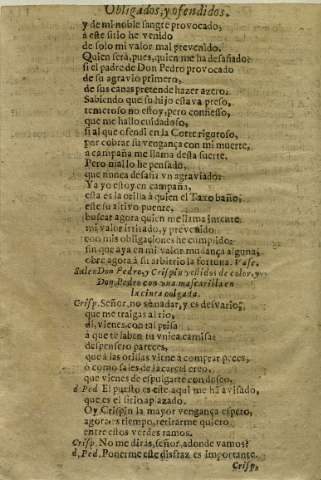 Obligados, y ofendidos.
y de mi noble sangre provocado,
à este sitio he venido
de solo mi valor mal prevenido.
Quien serà, pues, quien me ha desafiado?
si el padre de Don Pedro provocado
de su agravio primero,
de sus canas pretende hazer azero.
Sabiendo que su hijo estava preso,
temeroso no estoy, pero confiesso,
que me hallo cuidadoso,
si al que ofendi en la Corte rigoroso,
por cobrar su vengança con mi muerte,
a campaña me llama desta suerte.
Pero mal lo he pensado,
que nunca desafia vn agraviado:
Ya yo estoy en campaña,
esta es la orilla à quien el Taxo baña;
este su altivo puente,
buscar agora quien me llama intente
mi valor irritado, y prevenido
con mis obligaciones he cumplido:
sin que aya en mi valor mudança alguna,
obre agora à su arbitrio la fortuna. Vase.
Salen Don Pedro, y Crispin vestidos de color, y
Don Pedro con una mascarilla en
la cinta colgada.
Crisp. Señor, no es nadar, y es desvario,
que me traigas al rio,
di, vienes con tal prisa
à que te laben tu vnica camisa?
despensero pareces,
que à las orillas viene a comprar peces,
ò como sales de la carcel creo,
que vienes de espulgarte con deseo.
d. Ped. El puesto es este, aqui me ha avisado,
que es el sitio aplazado.
Oy Crispin la mayor vengança espero,
agora es tiempo, retirarme quiero
entre estos verdes ramos.
Crisp. No me diràs, señor, adonde vamos?
d. Ped. Ponerme este disfraz es importante.
Crisp.